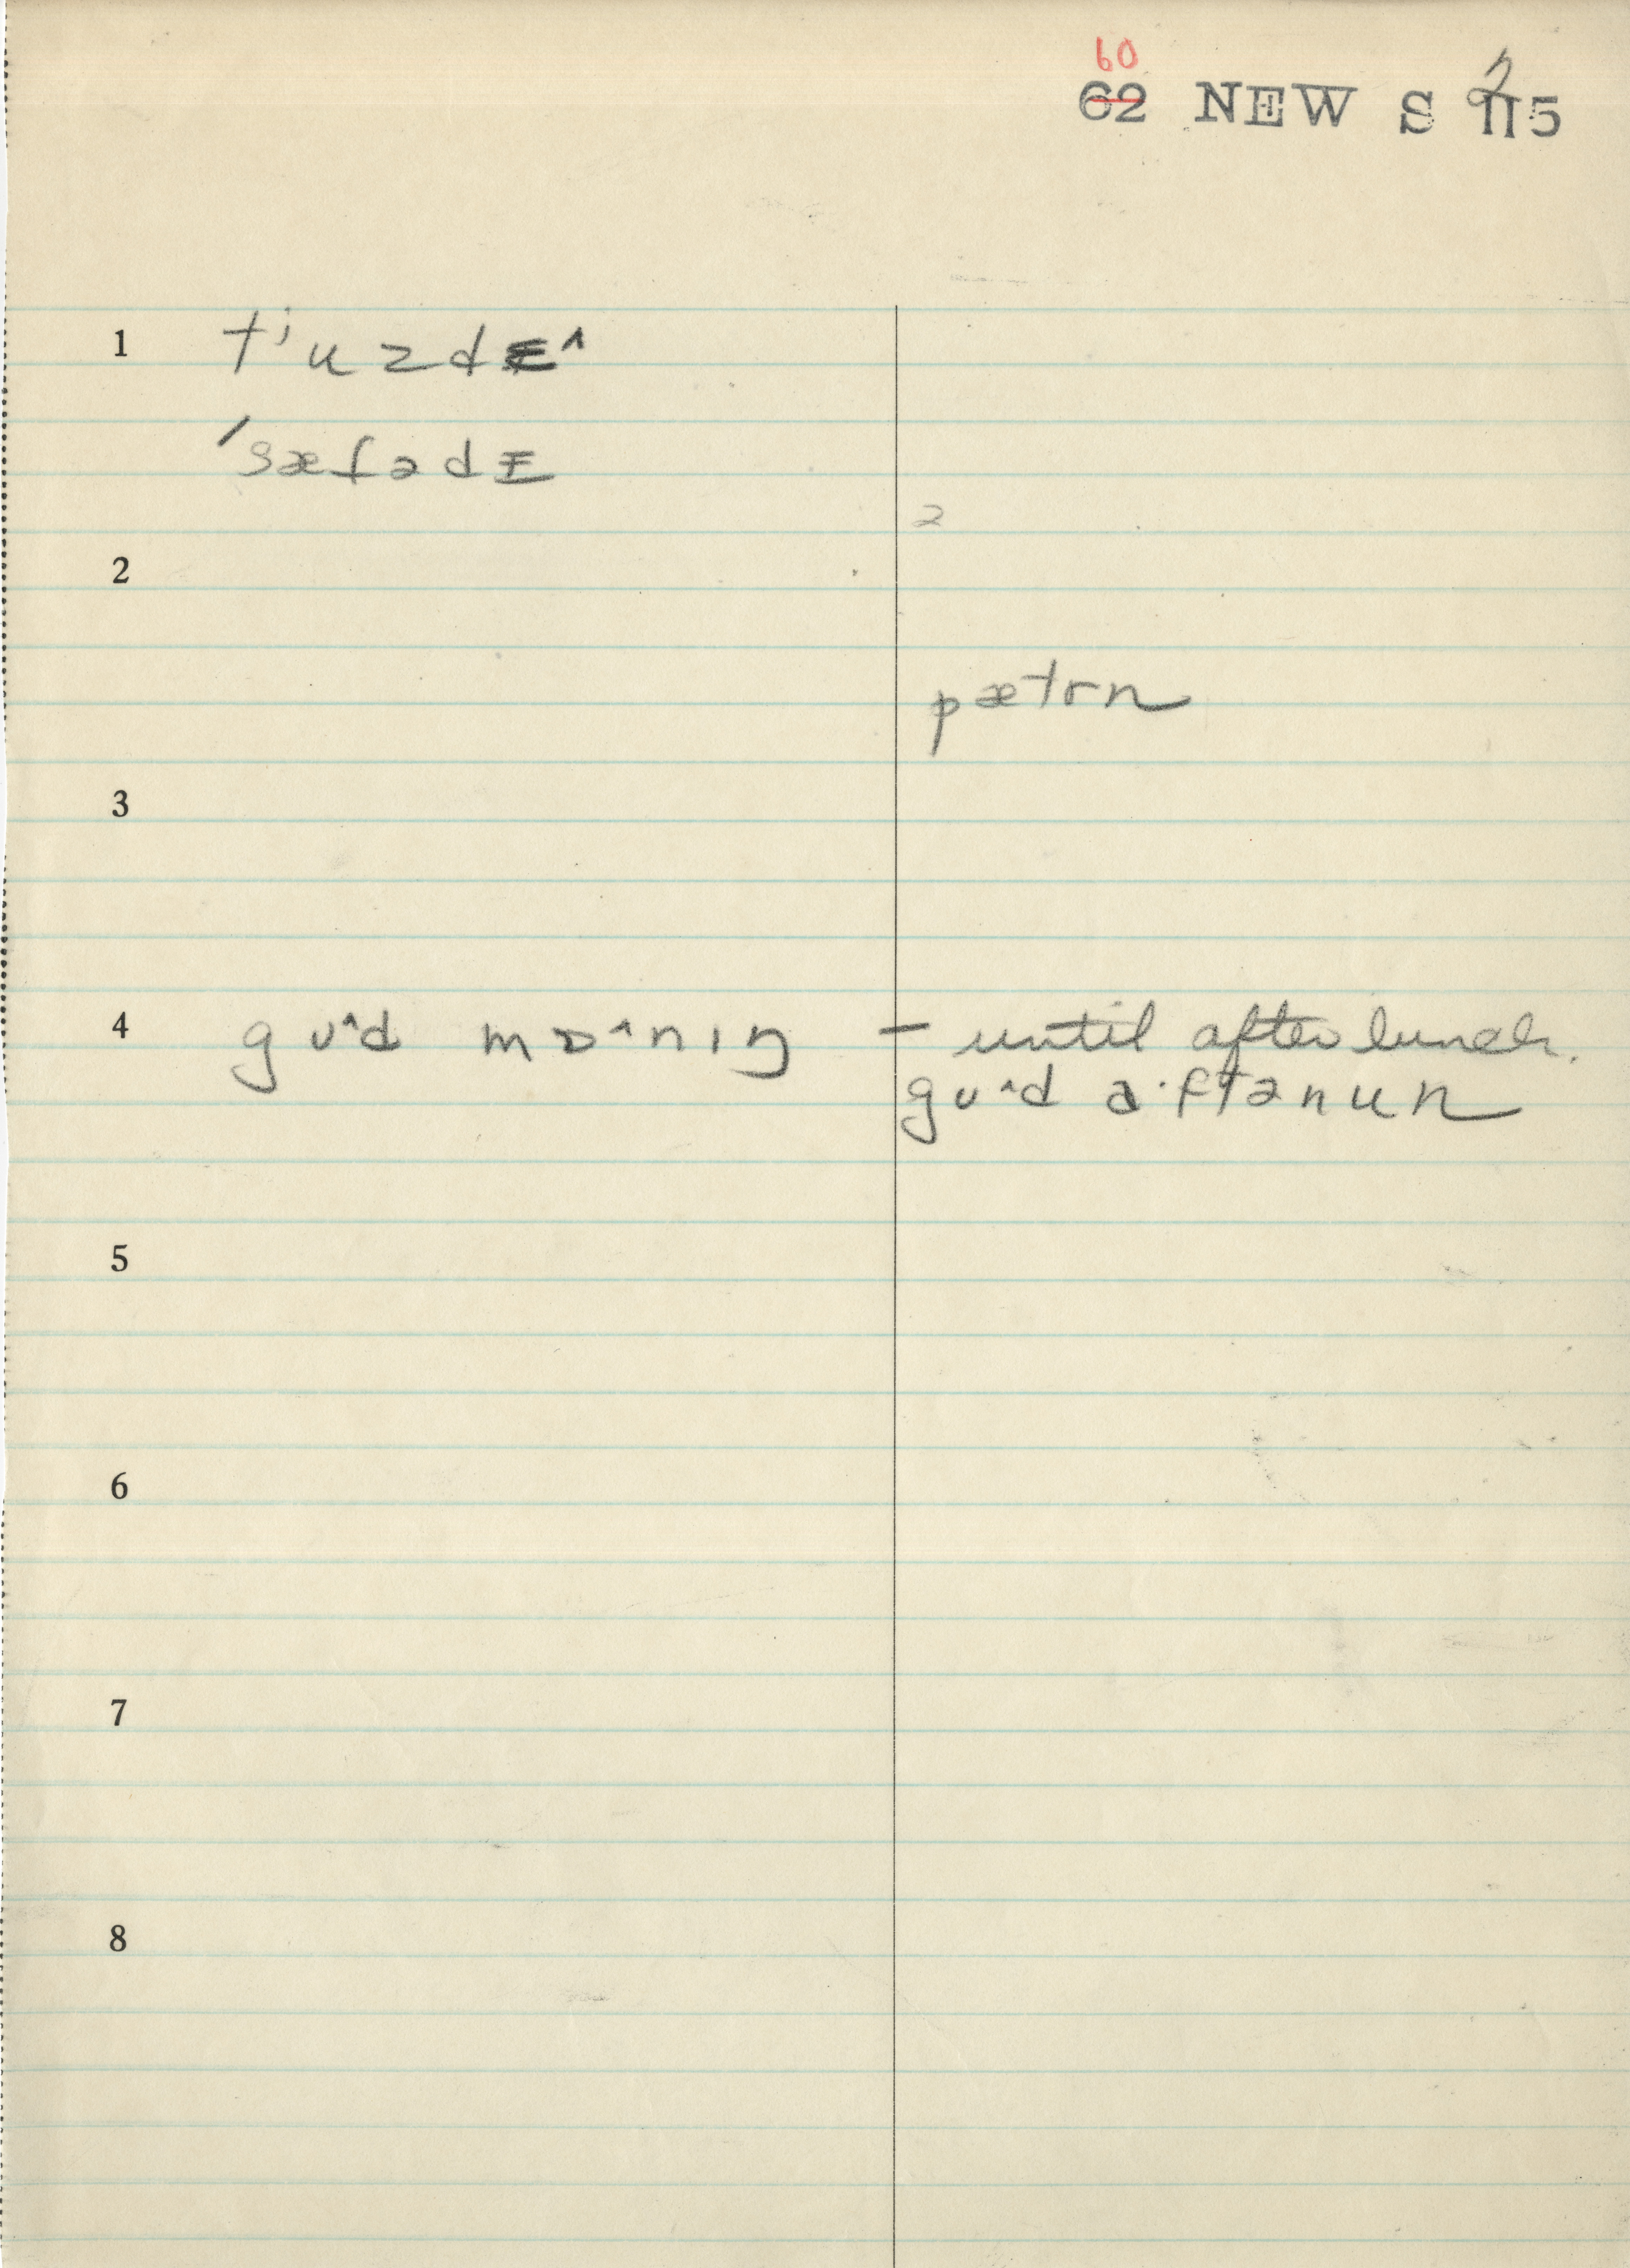 60
62 NEW S 2 115
1 tʲuzdɛ^
ˈsæfədɛ
ə
2
pætrn
3
4 gʊ^d mɒ^nɪŋ – until after lunch.
gʊ^d a·ftənun
5
6
7
8